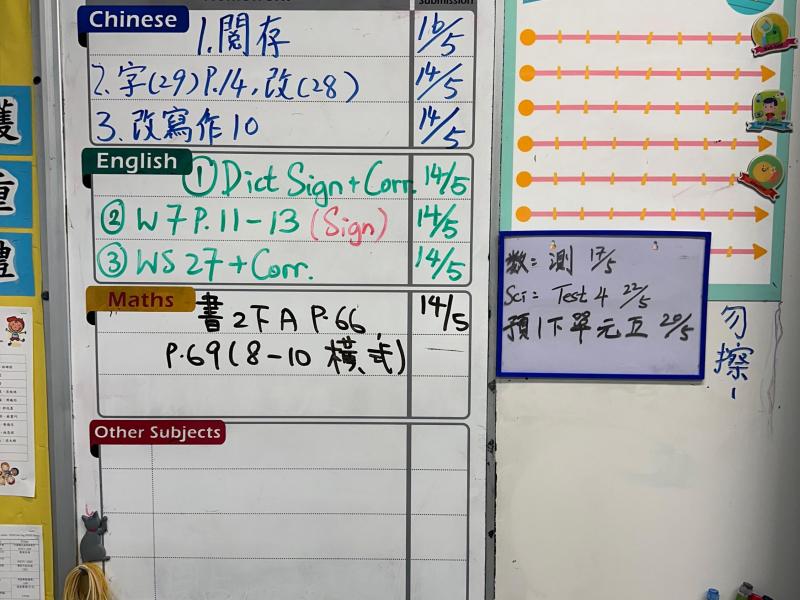 Submission
Chinese
1. 閱存 16/5
2. 字(29) P.14, 改(28) 14/5
3. 改寫作10 14/5
English
① Dict Sign + Corr. 14/5
② W 7 P. 11-13 (Sign) 14/5
③ WS 27 + Corr. 14/5
Maths
書 2下A P.66 14/5
P.69(8-10 橫式)
Other Subjects
重
禮
数: 測 17/5
Sci: Test 4 22/5
預1下單元五 20/5
勿擦